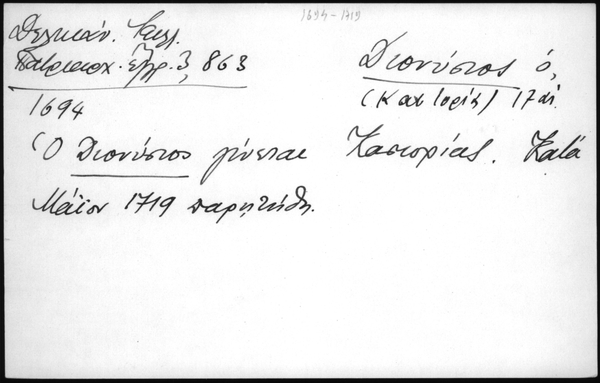 1694-1719
Δελικάν. Καλλ.
Πατριαρχ. ἔγγρ. 3, 863
Διονύσιος ὁ,
(Καστορίας) 17 αἰ.
1694
Ὁ Διονύσιος γίνεται Καστορίας. Κατά
Μάϊον 1719 παρῃτήθη.